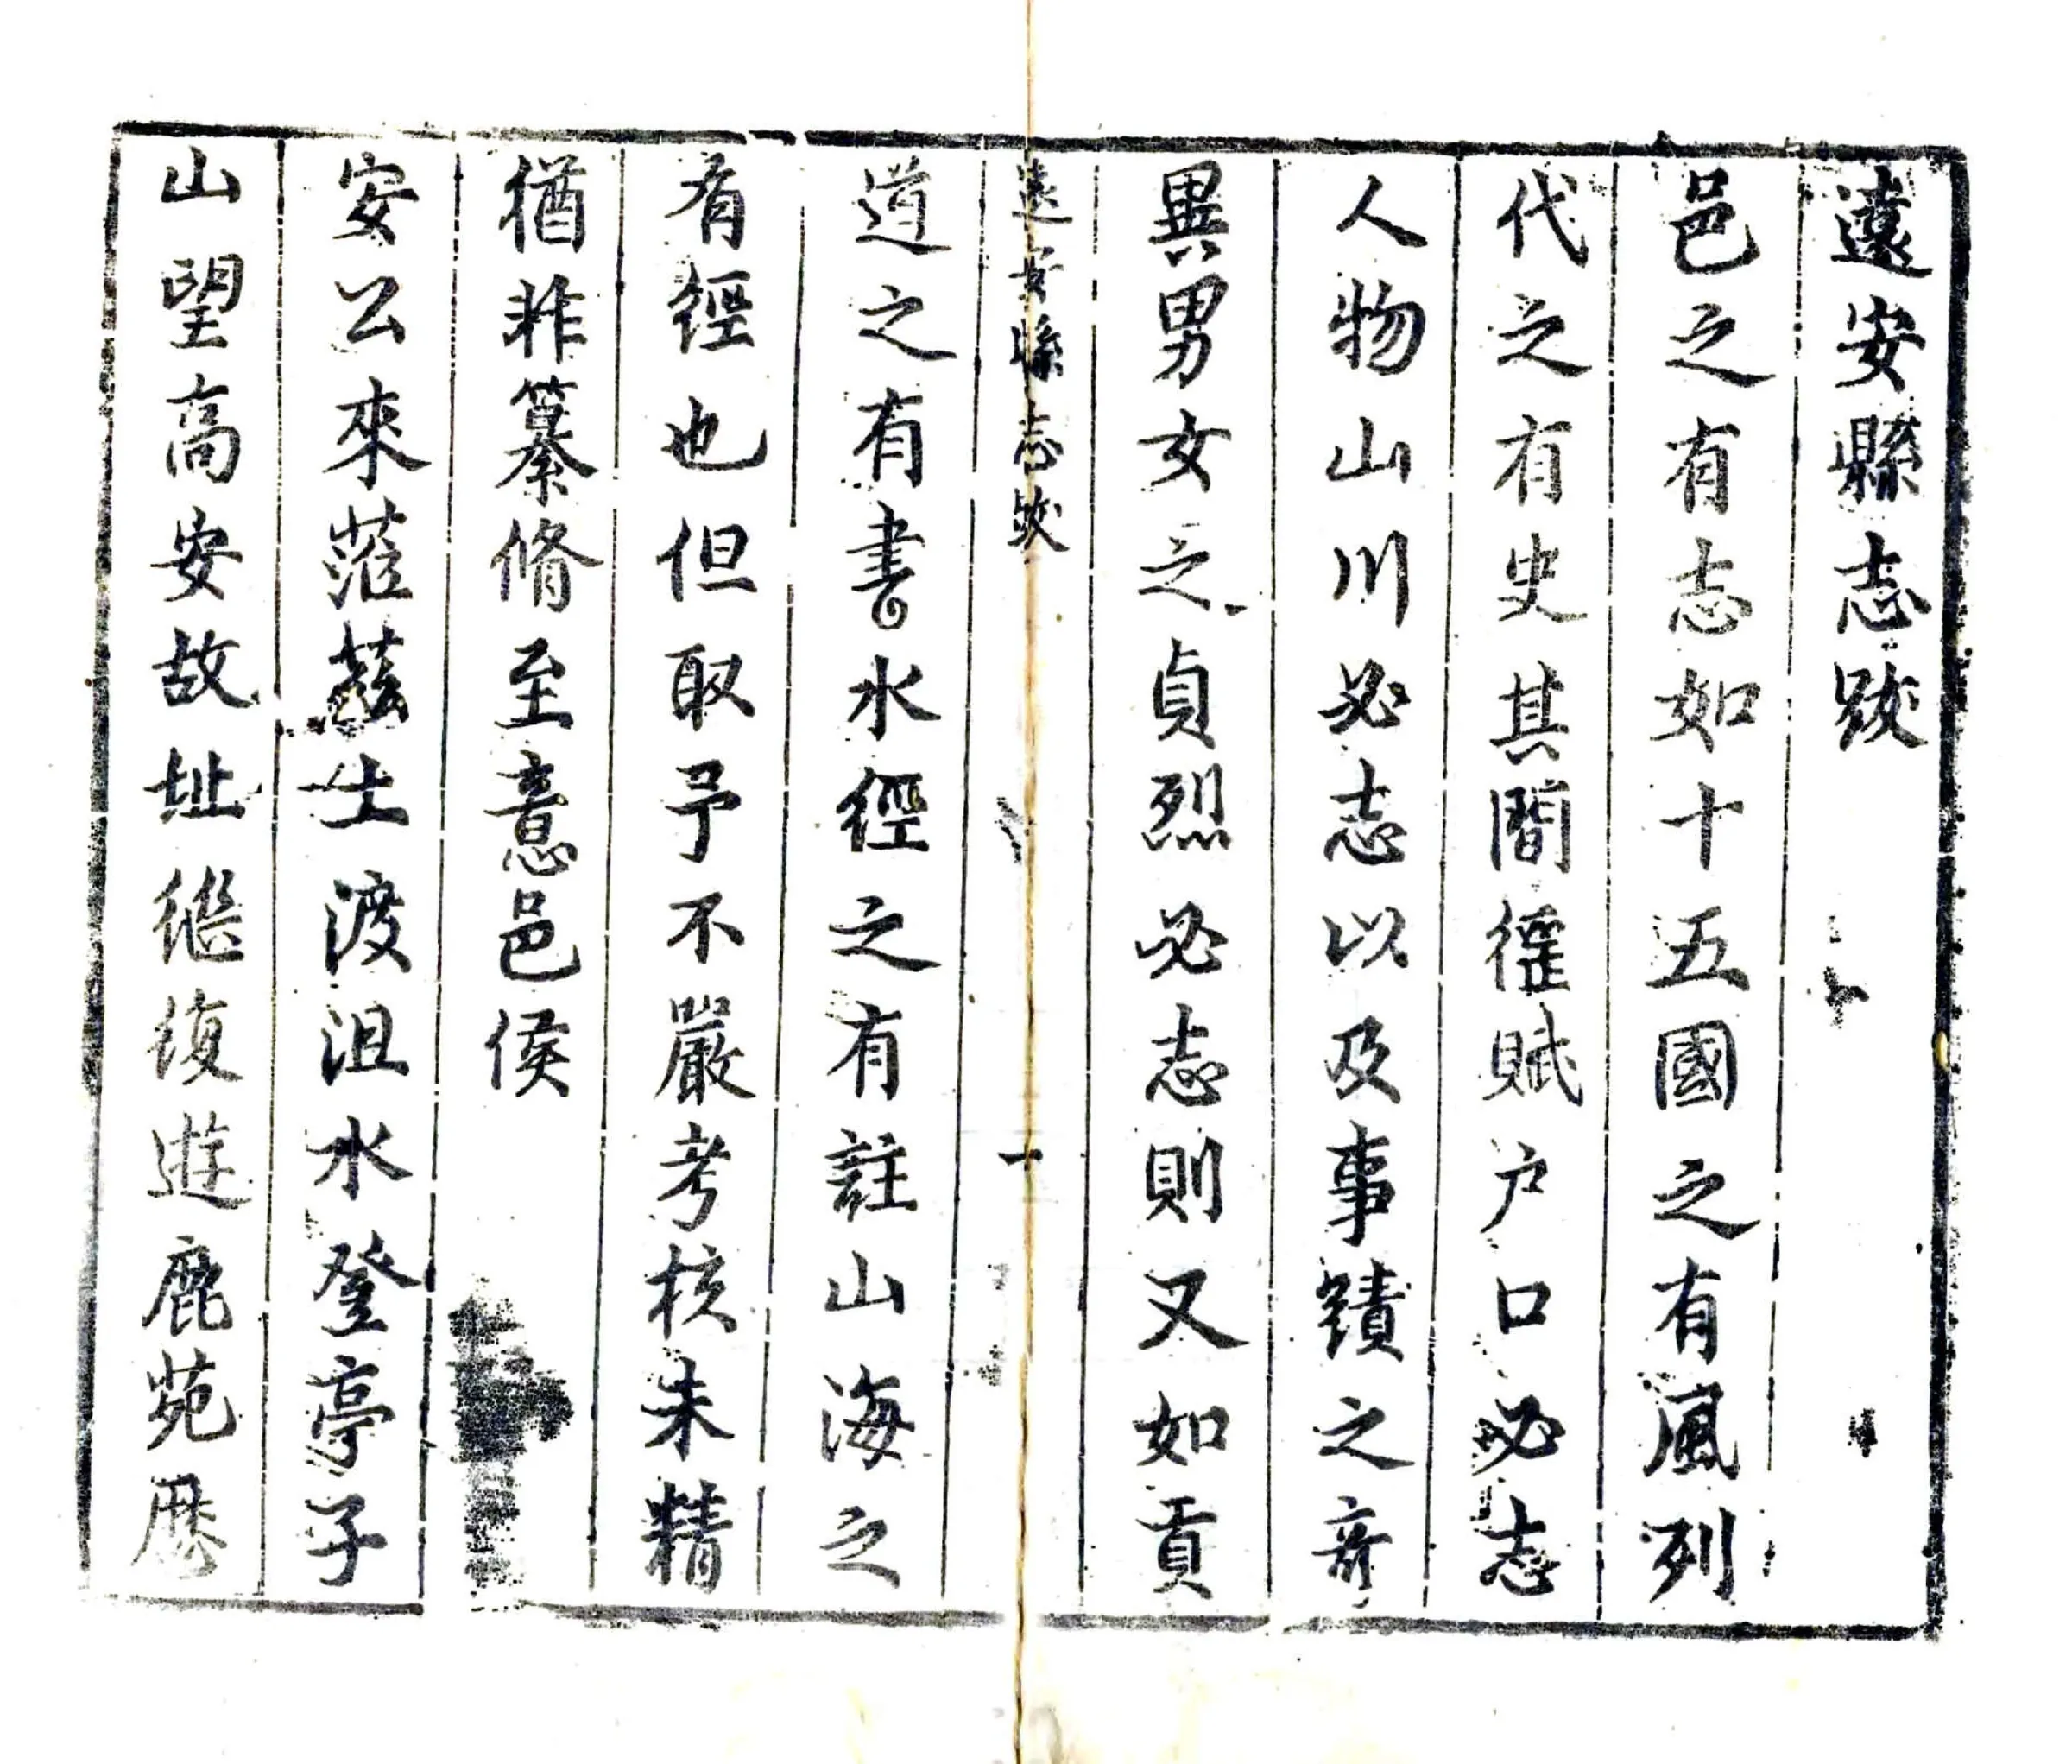 遠安縣志跋
邑之有志如十五國之有風列
代之有史其間徭賦户口必志
人物山川必志以及事蹟之奇
異男女之貞烈必志則又如貢
遠安縣志跋
一
道之有書水經之有註山海之
有經也但取予不嚴考核未精
猶非纂脩至意邑侯
安公來蒞茲土渡沮水登亭子
山望高安故址繼復遊鹿苑歷